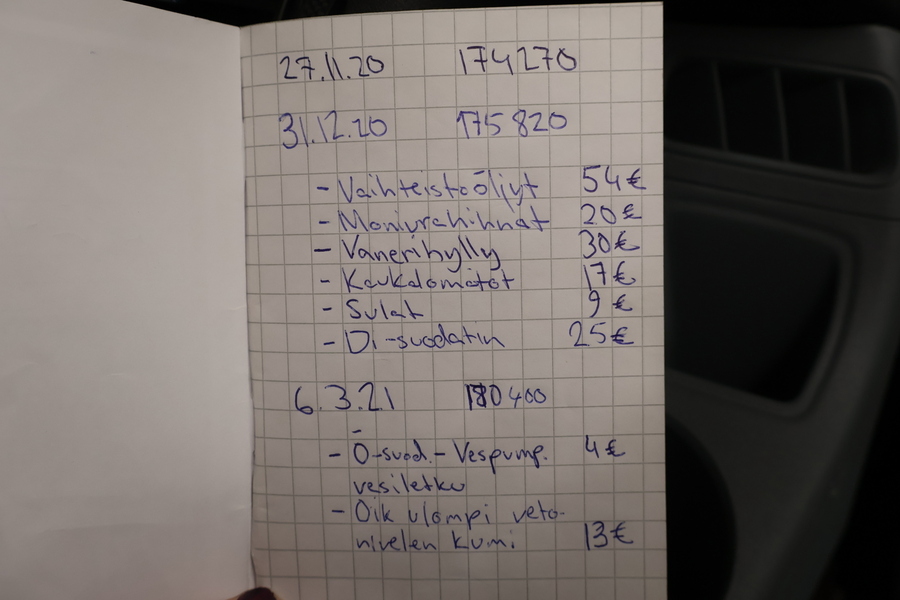 27.11.20 174270
31.12.20 175820
- Vaihteistoöljyt 54€
- Moniurahihnat 20€
- Vanerihylly 30€
- Kaukalomatot 17€
- Sulat 9€
- Di-suodatin 25€
6.3.21 180400
-
- Ö-suod. - Vespump. 4€
vesiletku
- Oik ulompi veto-
nivelen kumi 13€